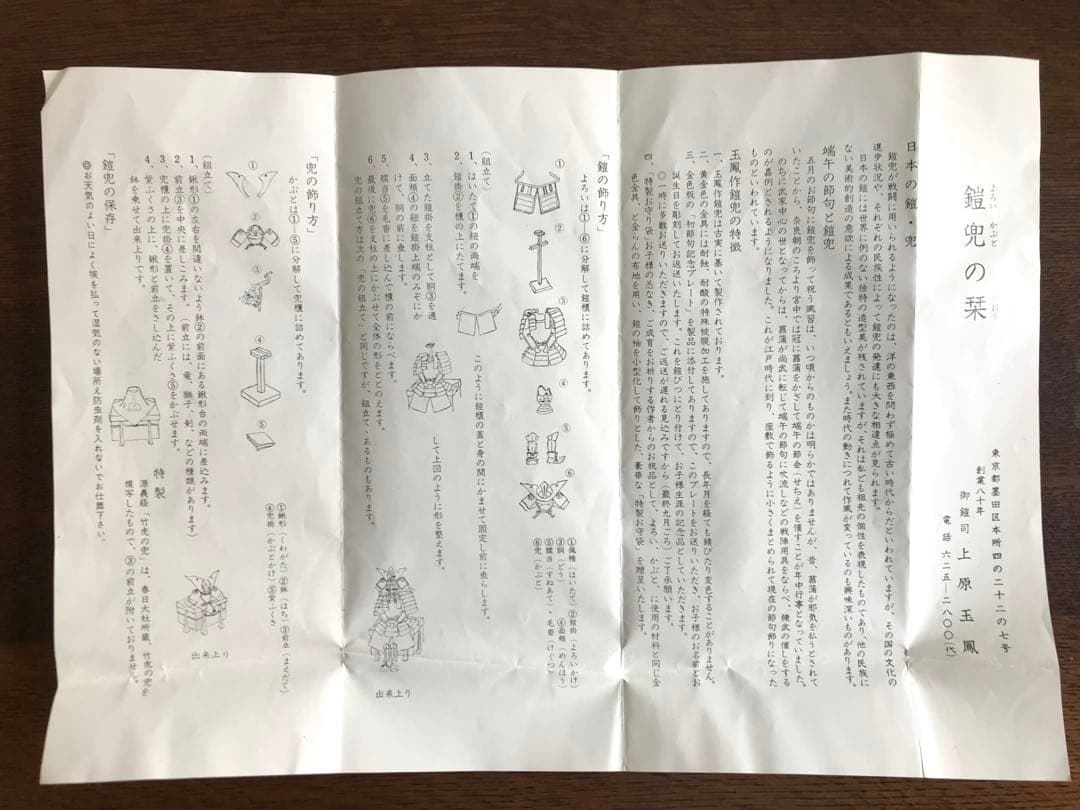 鎧兜の栞
よろい かぶと しおり
東京都墨田区本所四の二十二の七号
創業八十年
御鎧司 上原玉鳳
電話 六二五―二八〇〇(代)
日本の鎧・兜
鎧兜が戦闘に用いられるようになったのは、洋の東西を問わず極めて古い時代からだといわれていますが、その国の文化の
進歩状況や、それぞれの民族性によって鎧兜の発達にも大きな相違点が見られます。
日本の鎧には世界に例のない独特の造型美が残されていますが、それは私ども祖先の個性を表現したものであり、他の民族に
ない美術的創造の意欲による成果であるともいえましょう。また時代の動きにつれて作風が変っているのも興味深いものがあります。
端午の節句と鎧兜
五月のお節句に鎧兜を飾って祝う風習は、いつ頃からのものかは明らかではありませんが、昔、菖蒲が邪気を払うとされて
いたことから、奈良朝のころより宮中では冠に菖蒲をかざして端午の節会(せちえ)を催すことが年中行事となっていました。
のちに武家中心の世となってからは、菖蒲が尚武に転じて端午の節句に吹流しなどの戦陣用具をならべ、練武の催しをする
のが嘉例とされるようになりました。これが江戸時代に到り、座敷で飾るように小さくまとめられて現在の節句飾りになった
ものといわれています。
玉鳳作鎧兜の特徴
一、玉鳳作鎧兜は古実に基いて製作されております。
二、黄金色の金具には耐蝕、耐酸の特殊被膜加工を施してありますので、長年月を経ても錆びたり変色することがありません。
三、金色板の「初節句記念プレート」を製品に添付してありますので、このプレートをお送りいただき、お子様のお名前とお
誕生日を彫刻してお返送いたします。これを鎧びつにとり付けて、お子様生涯の記念品としていただきます。
◎一時に多数お送りいただきますので、ご返送が遅れる見込みですから(最終九月ごろ)ご了承願います。
四、「特製お守り袋」お子様の恙なき、ご成育をお祈りする作者からのお祝品として、よろい、かぶと、に使用の材料と同じ金
色金具、どんきんの布地を用い、鎧の袖を小型化して飾りとした、豪華な「特製お守袋」を贈呈いたします。
「鎧の飾り方」
よろいは①―⑥に分解して鎧櫃に詰めてあります。
①
②
③
④
⑤
⑥
①佩楯(はいたて)②鎧掛(よろいかけ)
③胴(どう) ④面頬(めんほう)
⑤臑当(すねあて)・毛沓(けぐつ)
⑥兜(かぶと)
(組立て)
1、はいたて①の紐の両端を
このように鎧櫃の蓋と身の間にかませて固定し前に垂らします。
2、鎧掛②を櫃の上にたてます。
3、立てた鎧掛を支柱として胴③を通
して上図のように形を整えます。
4、面頬④の紐を鎧掛上端のみぞにか
けて、胴の前に垂します。
5、臑当⑤を毛沓に差し込んで櫃の前にならべます。
6、最後に兜⑥を支柱の上にかぶせて全体の形をととのえます。
兜の組立て方は次の「兜の組立て」と同じですが、組立てゝあるものもあります。
出来上り
「兜の飾り方」
かぶとは①―⑤に分解して兜櫃に詰めてあります。
①
②
③
④
⑤
①鍬形(くわがた)②鉢(はち)③前立(まえだて)
④兜掛(かぶとかけ)⑤紫ふくさ
(組立て)
1、鍬形①の左右を間違いないよう鉢②の前面にある鍬形台の両端に差込みます。
2、前立③を中央に差しこみます。(前立には、竜、獅子、剣、などの種類があります)
3、兜櫃の上に兜掛④を置いて、その上に紫ふくさ⑤をかぶせます。
4、紫ふくさの上に、鍬形と前立をさし込んだ
鉢を乗せて出来上りです。
出来上り
特製
源義経「竹虎の兜」は、春日大社所蔵、竹虎の兜を
模写したもので、③の前立が附いておりません。
「鎧兜の保存」
◎お天気のよい日によく埃を払って湿気のない場所え防虫剤を入れないでお仕舞下さい。